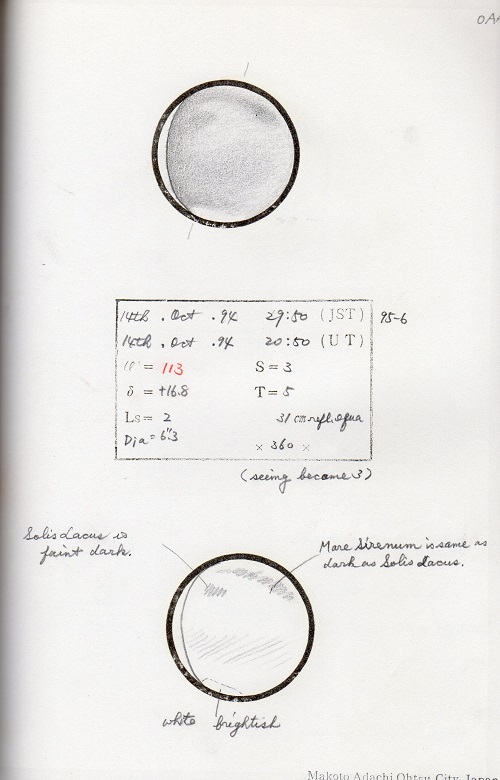 OA
14th . Oct . 94 29:50 (JST) 95-6
14th . Oct . 94 20:50 (UT)
ω = 113 S = 3
δ = +16.8 T = 5
Ls = 2 31 cm refl. equa
Dia = 6".3 × 360 ×
(seeing became 3)
Solis Lacus is
faint dark.
Mare Sirenum is same as
dark as Solis Lacus.
white brightish
Makoto Adachi Ohtsu City, Japan